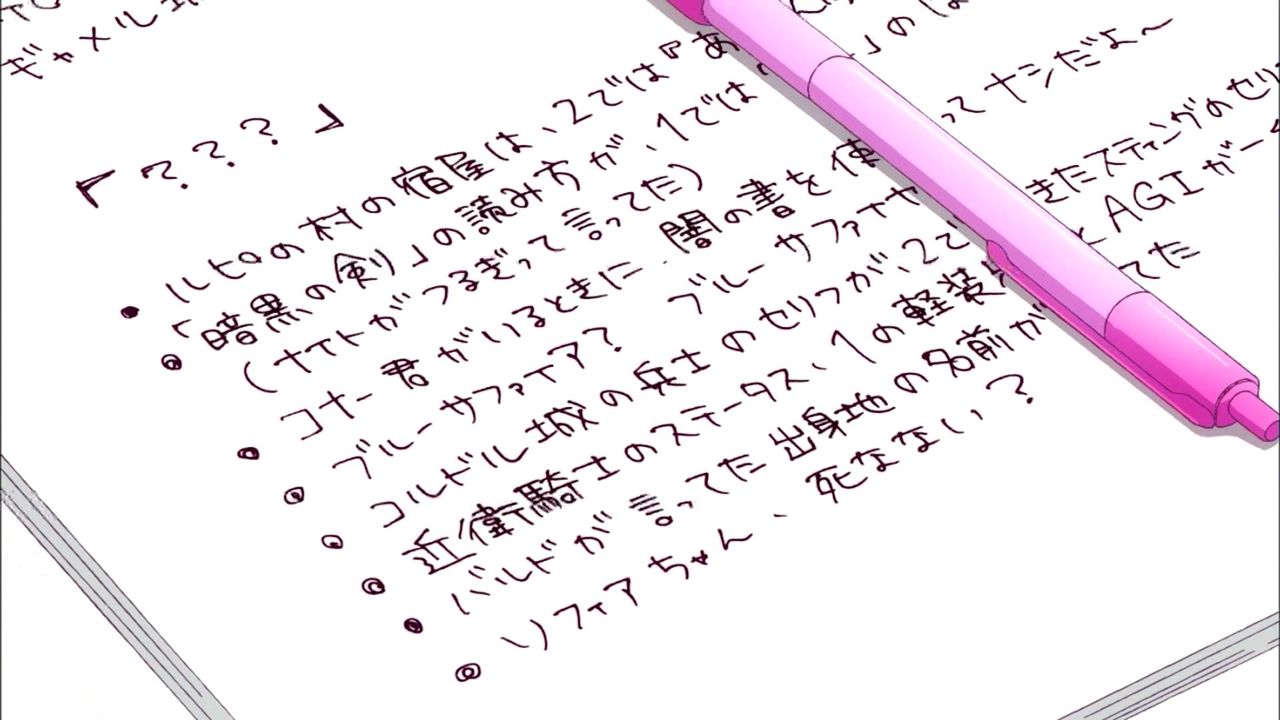 ギャメル
「？？？」
● ルピロの村の宿屋は、2では『あ
● 「暗黒の剣」の読み方が、1では
（ナイトがつるぎって言ってた）
● コナー君がいるときに、闇の書を使 ってナシだよ〜
● ブルーサファイア？ ブルーサファイヤ
● コルドル城の兵士のセリフが、2で きたスティングのセリ
● 近衛騎士のステータス、1の軽装 とAGIがー
● バルドが言ってた出身地の名前が てた
● リフィアちゃん、死なない？